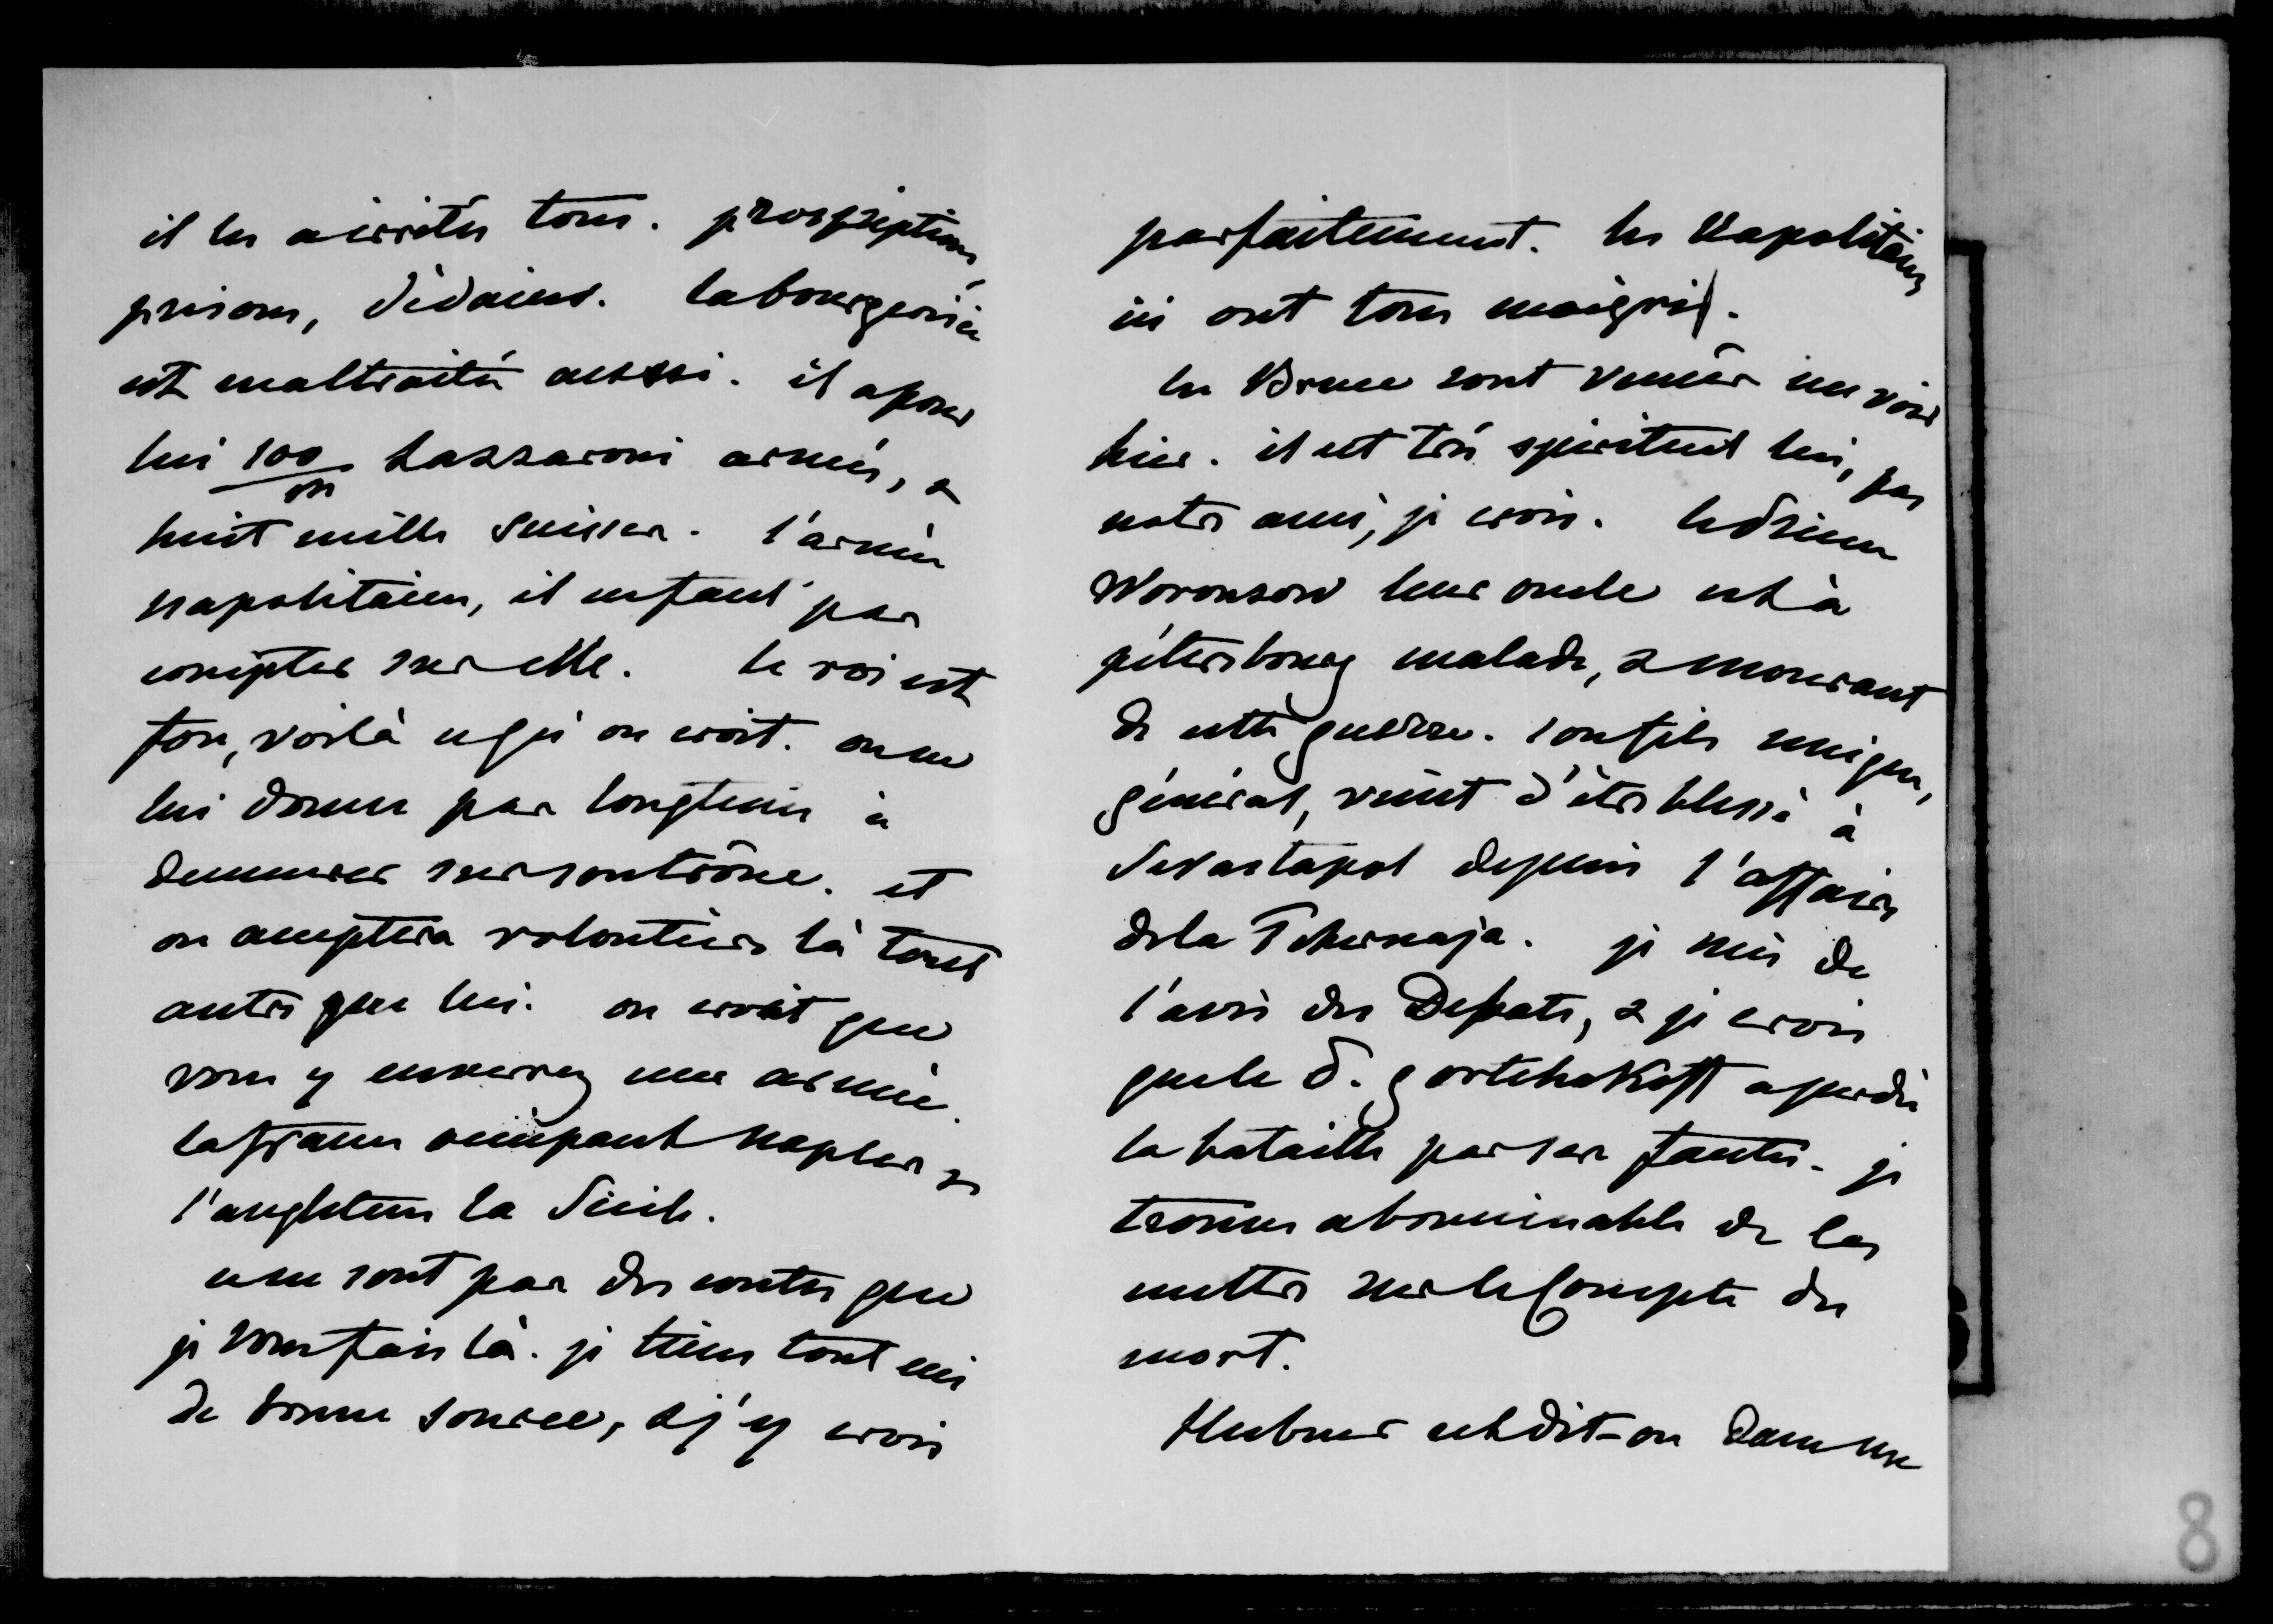 il les a irrités tous. proscriptions,
prisons, dédains. la bourgeoisie
est maltraitée aussi. il a pour
lui 100/m Lazzaroni armés, &
huit mille Suisses. l'armée
napolitaine, il ne faut pas
compter sur elle. le roi est
fou, voilà ce qu'on croit. on ne
lui donne pas longtems à
demeurer sur son trône. et
on acceptera volontiers là tout
autre que lui. on croit que
vous y enverrez une armée.
la france occupant Naples &
l'angleterre la Sicile.
ce ne sont pas des contes que
je vous fais là. je tiens tout ceci
de bonne source, & j'y crois
parfaitement. les Napolitains
ici ont tous maigri.
les Brunow sont venus me voir
hier. il est très spirituel lui, pas
notre ami, je crois. le Prince
Woronzow leur oncle est à
pétersbourg malade, & mourant
de cette guerre. son fils unique,
général, vient d'être blessé à
Sevastapol depuis l'affaire
de la Tchernaja. je suis de
l'avis des Debats, & je crois
que le P. gortchakoff a perdu
la bataille par ses fautes. je
trouve abominable de les
mettre sur le Compte du
mort.
Hubner est dit-on dans une